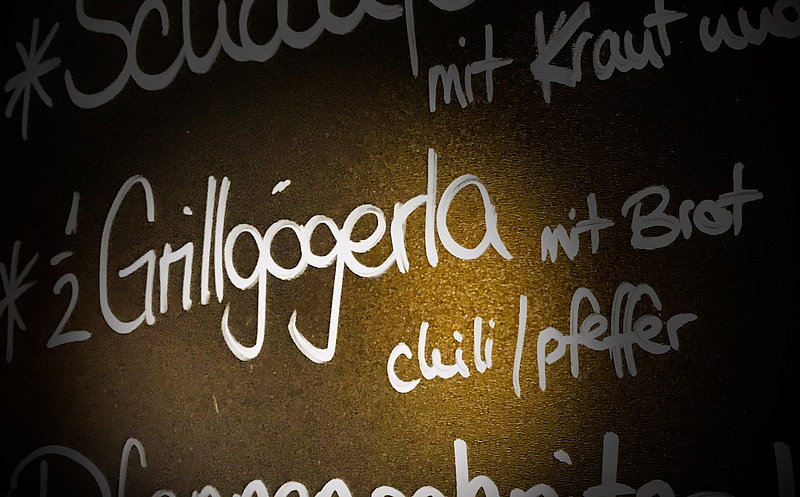 mit Kraut und
* 1/2 Grillgögerla mit Brot
chili/pfeffer